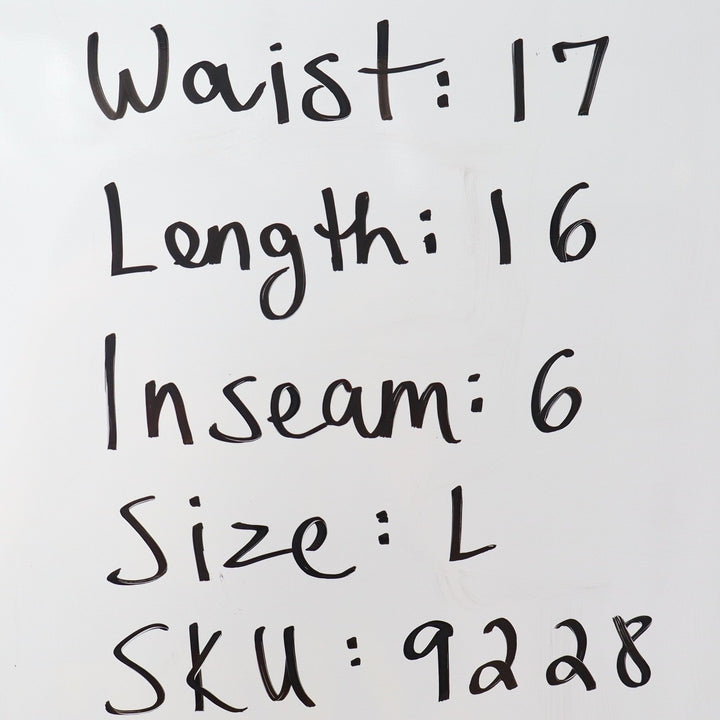 Waist: 17
Length: 16
Inseam: 6
Size: L
SKU: 9228